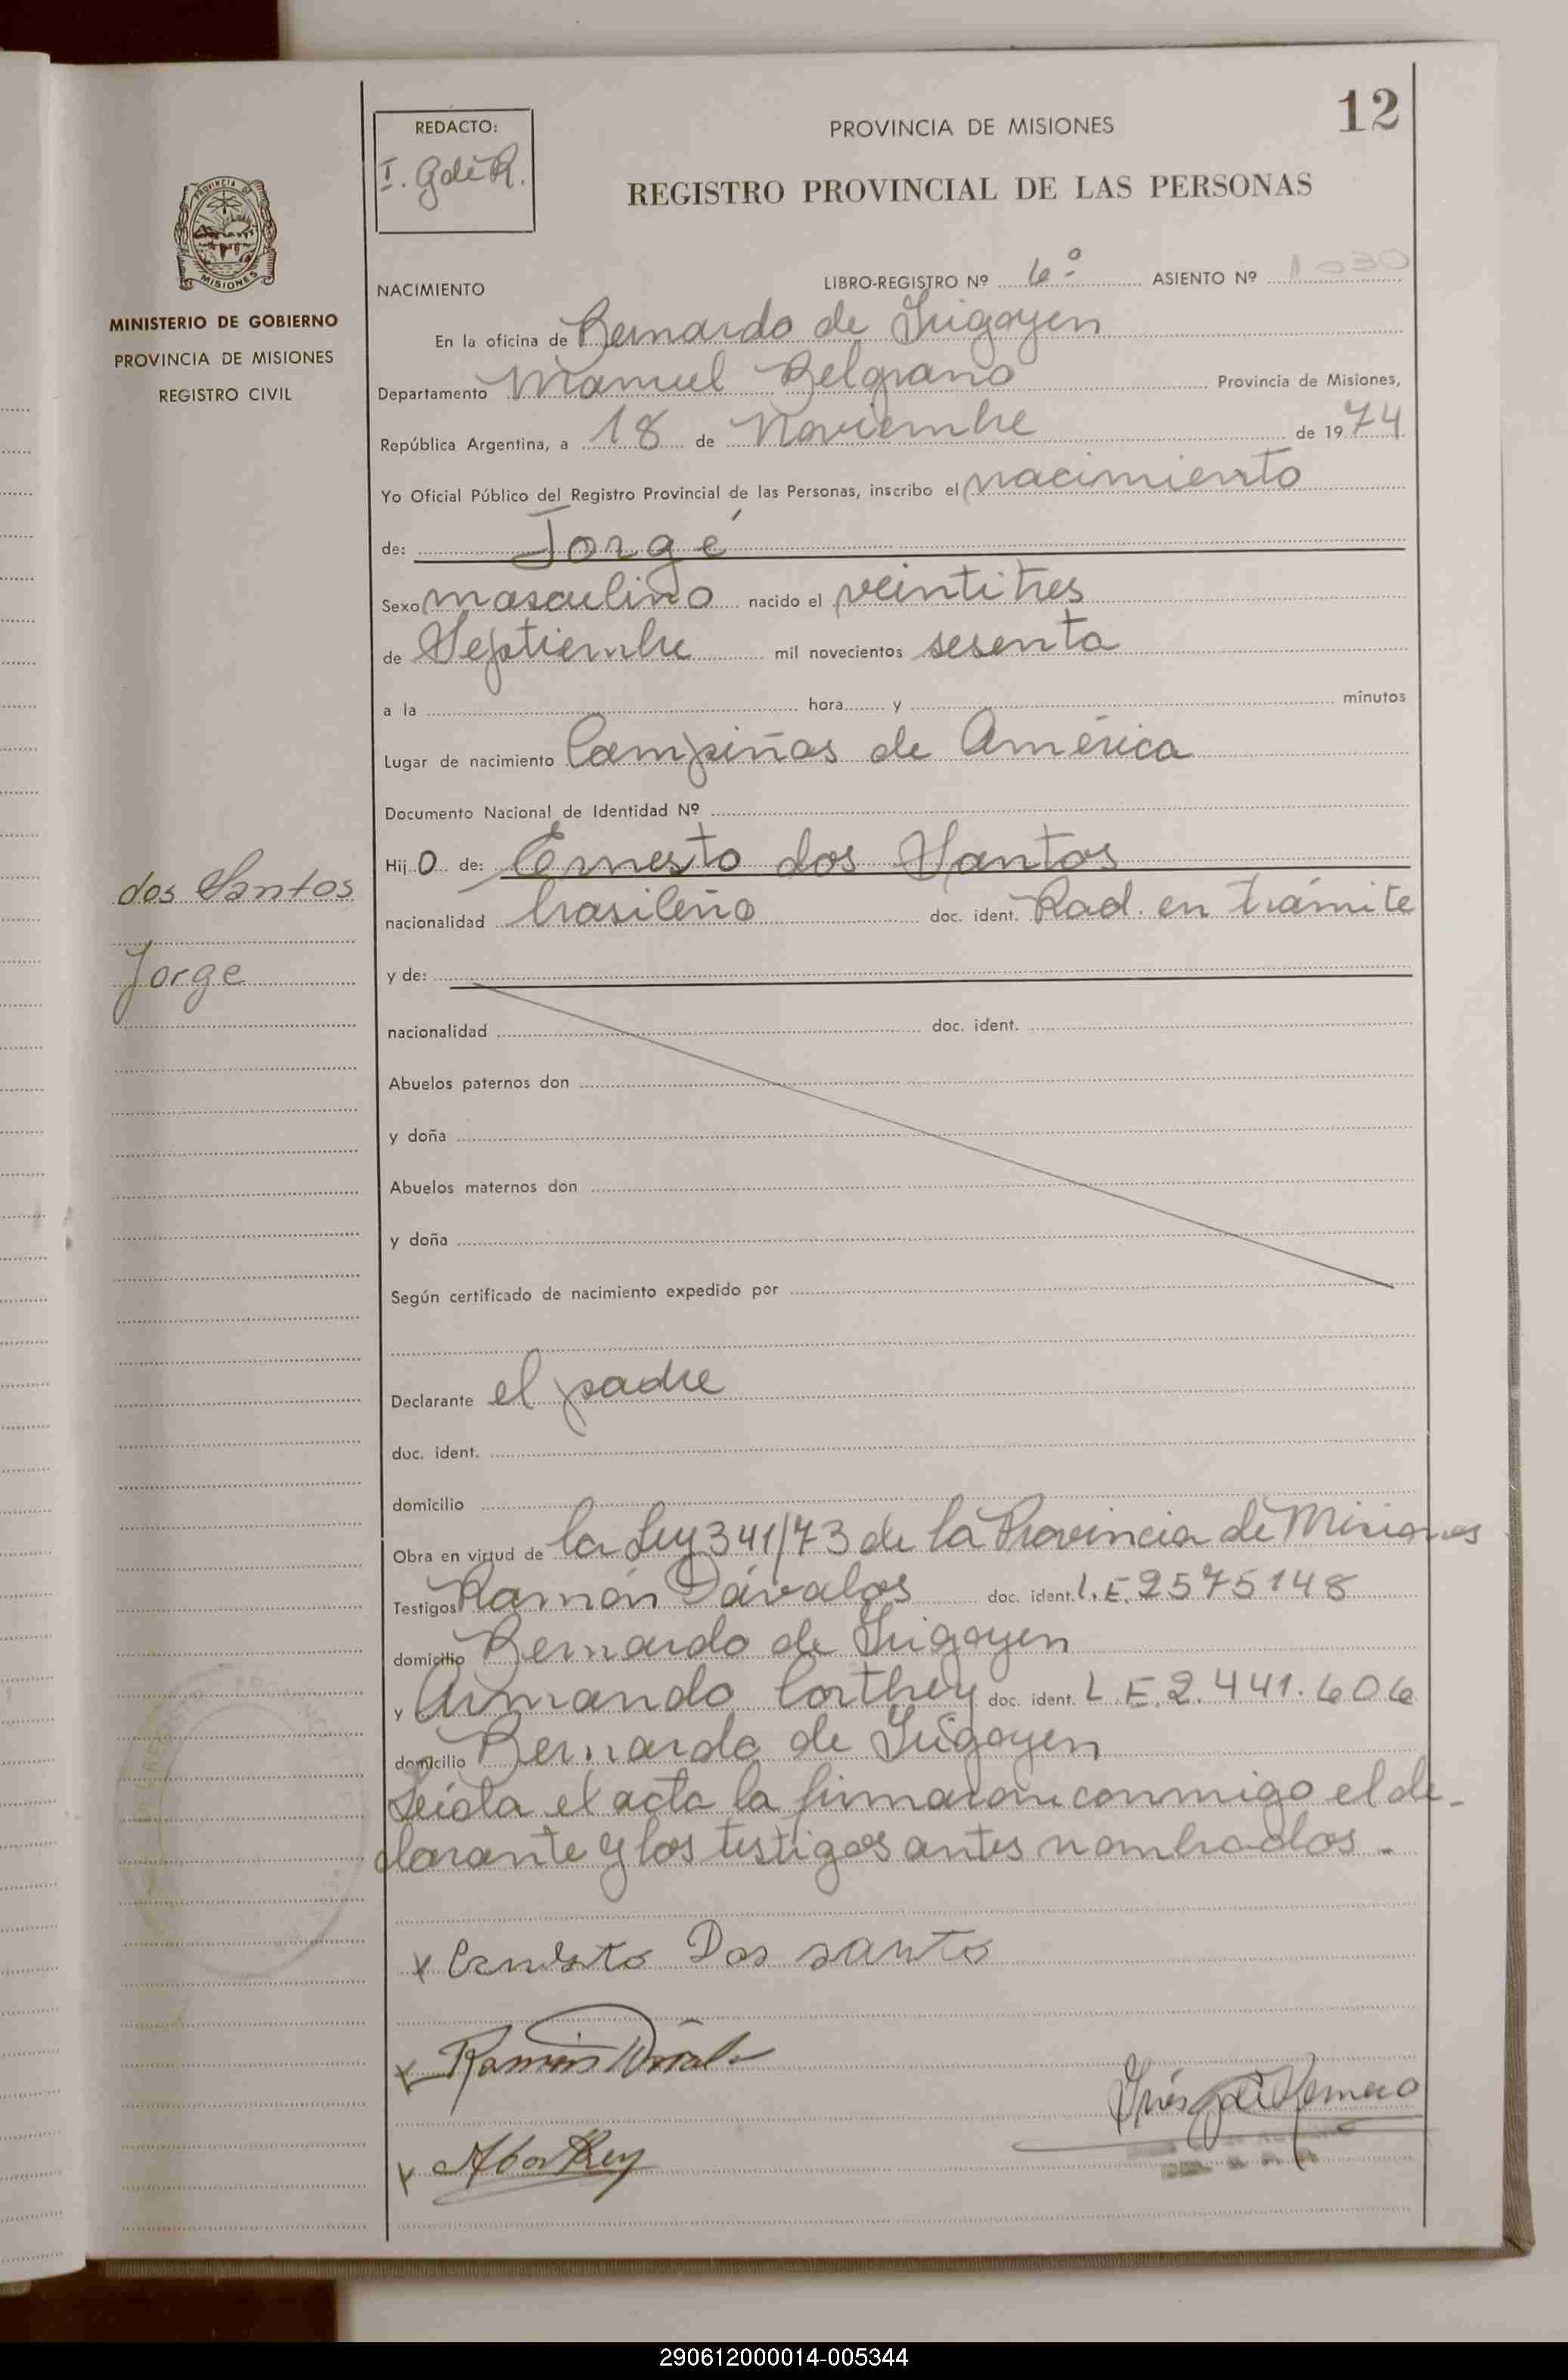 12
REDACTO:
I. G de R.
PROVINCIA DE MISIONES
REGISTRO PROVINCIAL DE LAS PERSONAS
PROVINCIA DE
MISIONES
MINISTERIO DE GOBIERNO
PROVINCIA DE MISIONES
REGISTRO CIVIL
NACIMIENTO LIBRO-REGISTRO Nº 6º ASIENTO Nº 1030
En la oficina de Bernardo de Irigoyen
Departamento Manuel Belgrano Provincia de Misiones,
República Argentina, a 18 de Noviembre de 1974
Yo Oficial Público del Registro Provincial de las Personas, inscribo el nacimiento
de: Jorge
Sexo masculino nacido el veintitres
de Septiembre mil novecientos sesenta
a la hora y minutos
Lugar de nacimiento Campiñas de América
Documento Nacional de Identidad Nº
Hijo de: Ernesto dos Santos
dos Santos
nacionalidad brasileño doc. ident. Rad. en trámite
Jorge
y de:
nacionalidad doc. ident.
Abuelos paternos don
y doña
Abuelos maternos don
y doña
Según certificado de nacimiento expedido por
Declarante el padre
doc. ident.
domicilio
Obra en virtud de la Ley 341/73 de la Provincia de Misiones
Testigos Ramón Dávalos doc. ident. L.E. 2575148
domicilio Bernardo de Irigoyen
y Armando Corthey doc. ident. L.E. 2.441.606
domicilio Bernardo de Irigoyen
Leída el acta la firmaron conmigo el de-
clarante y los testigos antes nombrados.
x Ernesto Dos santos
x Ramón
x ACorthey
Inés G de Romero
290612000014-005344